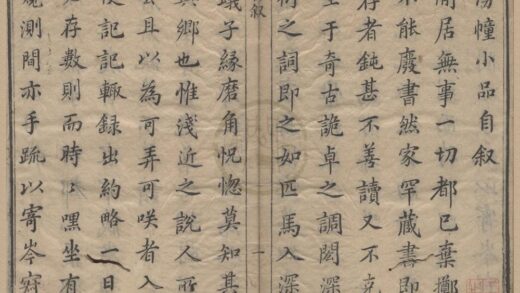 湧幢小品自叙
閒居無事一切都已棄擲
不能廢書然家罕藏書即
存者鈍甚不善讀又不克
至于奇古詭卓之調閎深
衍之詞即之如匹馬入深
叙
蟻子緣磨角怳惚莫知其
一
與鄉也惟淺近之說人所
去且以為可弄可咲者入
記記輙録出約略一日
存數則而時〻嘿坐有
窺測間亦手疏以寄岑寂